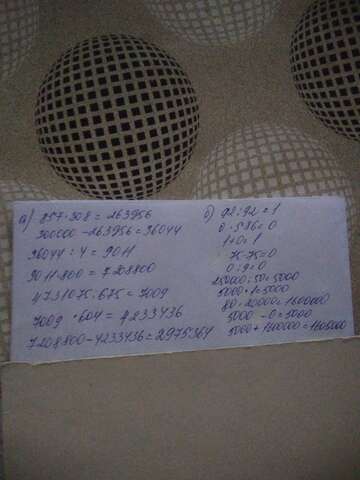 а) 857·308 = 263956
300000 - 263956 = 36044
36044 : 4 = 9011
9011·800 = 7208800
4731075 : 675 = 7009
7009 · 604 = 4233436
7208800 - 4233436 = 2975364
б) 92:92 = 1
0·586 = 0
1+0 = 1
75-75 = 0
0:9 = 0
250000:50 = 5000
5000·1 = 5000
80·20000 = 1600000
5000 - 0 = 5000
5000 + 1600000 = 1605000